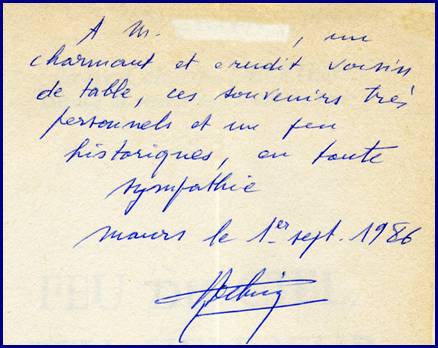 A M. , un
charmant et erudit voisin
de table, ces souvenirs très
personnels et un peu
historiques, en toute
sympathie
Maurs le 1er sept. 1986